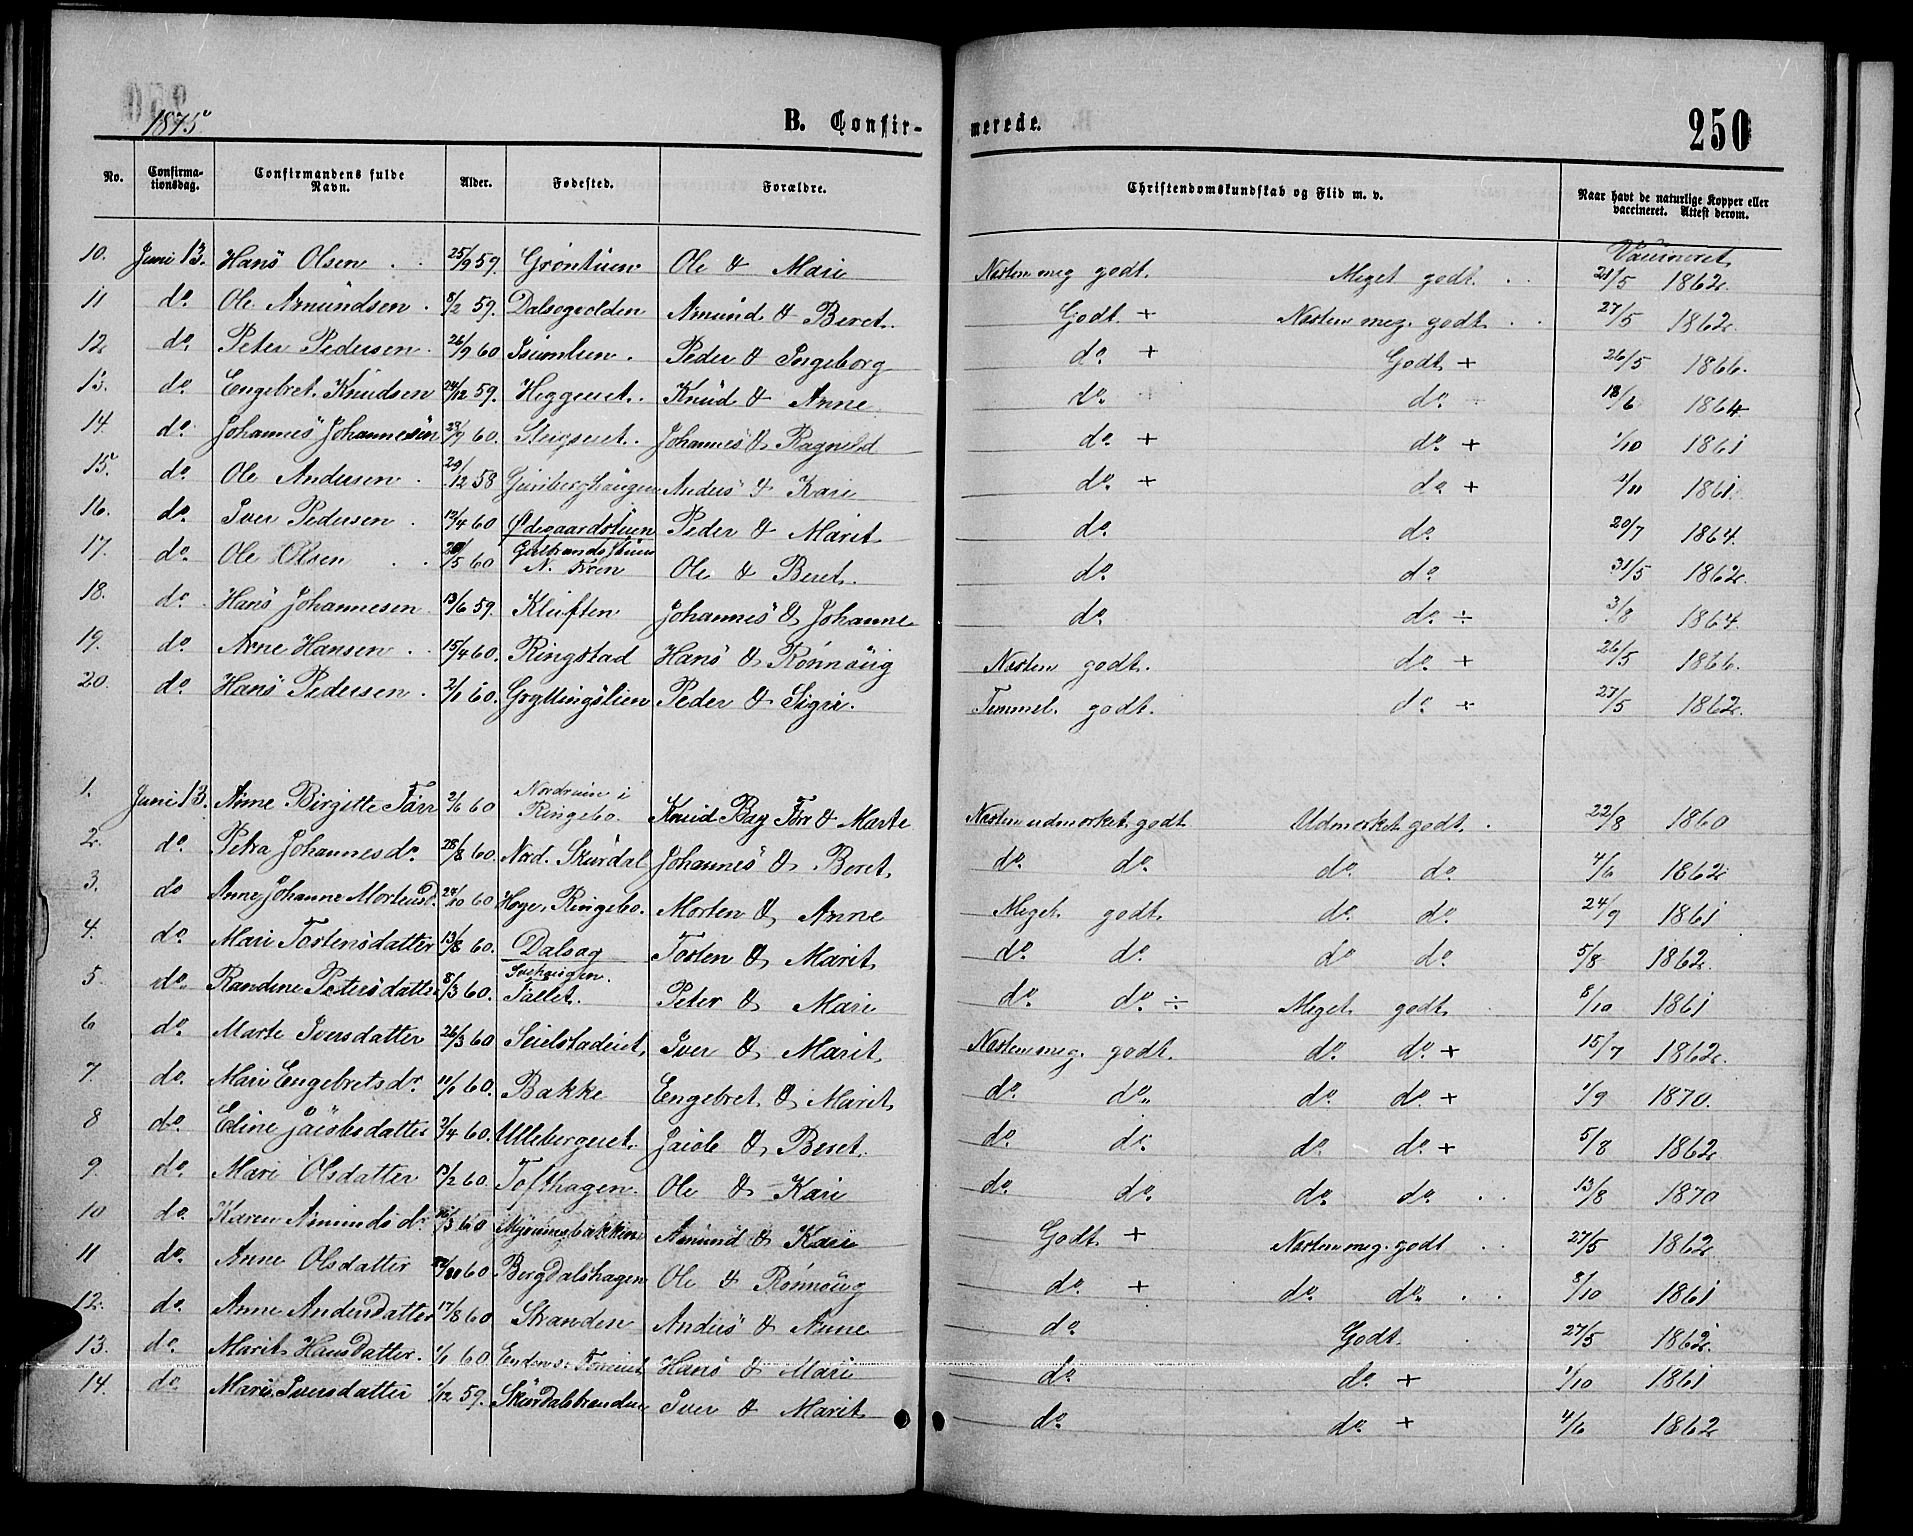 1875
B. Confir-
merede.
250
No. Confirma-tionsdag. Confirmandens fulde Navn. Alder. Fødested. Forældre. Christendomskundskab og Flid m. v. Naar havt de naturlige Kopper eller vaccineret. Attest derom.
Vaccineret
10. Juni 13. Hans Olsen 25/9 59. Grøntuen Ole & Mari Næsten meg godt. Meget godt. 21/5 1862.
11 do. Ole Amundsen 8/2 59. Dalsegvolden Amund & Beret. Godt + Næsten meg. godt 27/5 1862.
12 do. Peter Pedersen 26/9 60 Peder & Ingeborg do. + Godt + 26/5 1866.
13. do. Engebret Knudsen 24/12 59. Heggeeiet. Knud & Anne do. do. 18/6 1864
14. do. Johannes Johannesen 23/9 60. Steigseiet. Johannes & Ragnild do. + do. + 1/10 1861
15. do. Ole Andersen 29/12 58 Anders & Kari do. + do. + 1861.
16. do. Iver Pedersen 12/4 60 Ødegaardstuen Peder & Marit do. do. 20/7 1864.
17. do. Ole Olsen /5 60 N. Fron Ole & Beret. do. do. 31/5 1862.
18. do. Hans Johannesen 13/6 59. Kluften Johannes & Johanne do. do. ÷ 3/8 1864.
19. do. Arne Hansen 15/4 60. Ringstad Hans & Rønnoug Næsten godt. do. + 26/5 1866.
20. do. Hans Pedersen 2/1 60. Gryttingslien Peder & Sigri. Temmel. godt. do. + 27/5 1862.
1. Juni 13. Anne Birgitte Tårr 2/6 60 Nordrum i Ringebo. Knud Bay Tårr & Marte Næsten udmærket godt Udmærket godt. 22/8 1860
2. do. Petra Johannesdr. 28/8 60. Nord. Skurdal Johannes & Beret. do. do. do. do. 4/6 1862
3. do Anne Johanne Mortensd. 24/10 60 Høge, Ringebo. Morten & Anne Meget godt do. do. 24/9 1861
4. do. Mari Tostensdatter 13/8 60. Dalseg Tosten & Marit do. do. do. do. 5/8 1862.
5. do. Randine Petersdatter 8/3 60. Peter & Mari do. do. ÷ Meget godt 8/10 1861
6 do. Marte Iversdatter 26/3 60 Seielstadeiet, Iver & Marit Næsten meg. godt. do. do. + 15/7 1862.
7. do. Mari Engebretsdr. 11/1 60. Bakke Engebret & Marit do. do. do. do. + 1/9 1870.
8 do. Eline Jacobsdatter 2/4 60. Ullebergeiet. Jacob & Beret. do. do. do. do. + 5/8 1862
9. do. Mari Olsdatter 13/2 60. Tofthagen. Ole & Kari do. do. do. do. 13/8 1870
10 do. Karen Amundsdr. 16/3 60 Amund & Kari Godt + Næsten meg. godt 27/5 1862
11 do. Anne Olsdatter /10 60 Bergdalshagen Ole & Rønnoug do. + do. do. 8/10 1861
12. do. Anne Andersdatter 17/8 60 Stranden Anders & Anne do. Godt. 27/5 1862.
13. do. Marit Hansdatter. 1/1 60 Hans & Mari do. do. + 1/10 1861
14. do. Mari Iversdatter 1/12 59. Skurdalstranden Iver & Marit do. do. + 4/6 1862